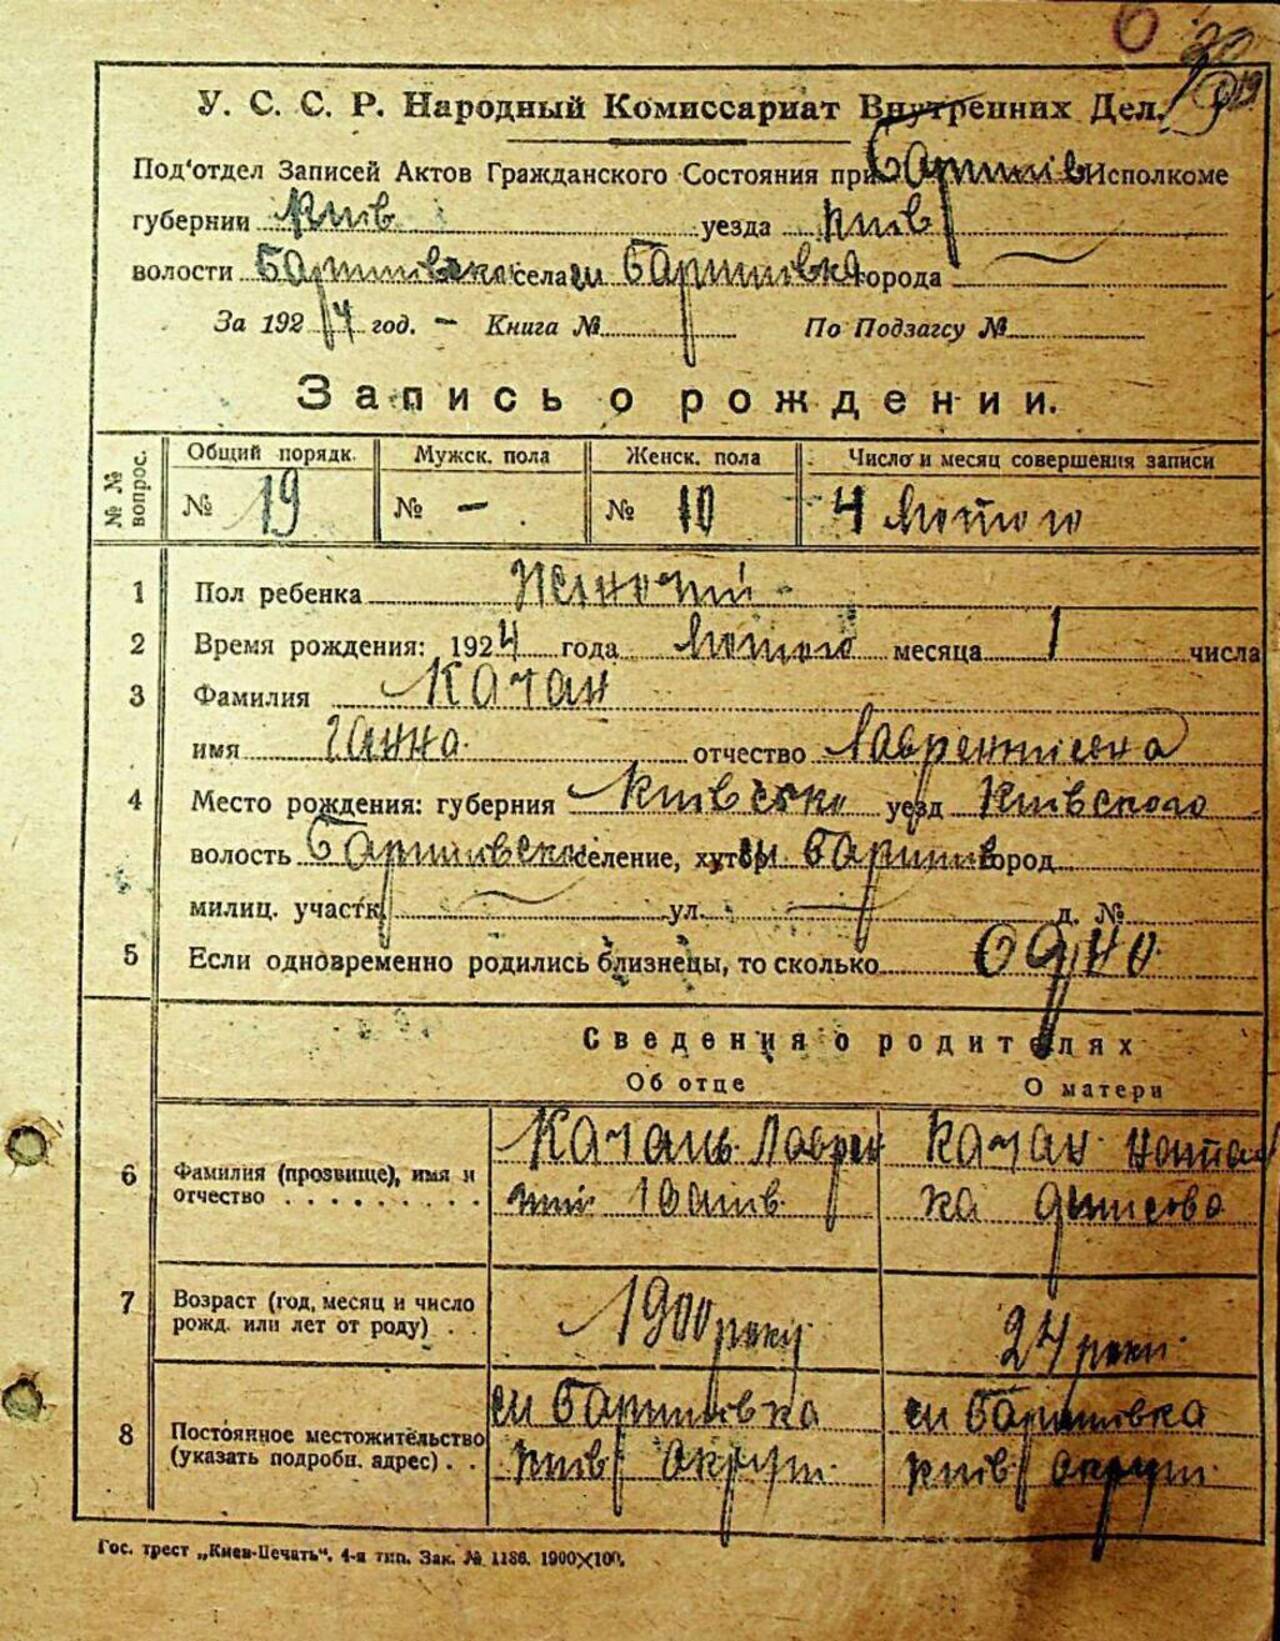 6
19
У. С. С. Р. Народный Комиссариат Внутренних Дел.
Под'отдел Записей Актов Гражданского Состояния при Баришів Исполкоме
губернии Київ уезда Київ
волости Баришівська села м Баришівка города
За 1924 год. – Книга № По Подзагсу №
Запись о рождении.
№ № вопрос. Общий порядк. Мужск. пола Женск. пола Число и месяц совершения записи
№ 19 № – № 10 4 Лютого
1 Пол ребенка Жіночий
2 Время рождения: 1924 года Лютого месяца 1 числа
3 Фамилия Качан
имя Ганна отчество Лаврентиевна
4 Место рождения: губерния Київсько уезд Київського
волость Баришівськ селение, хутор м Баришів город
милиц. участк. ул. д. №
5 Если одновременно родились близнецы, то сколько одно
Сведения о родителях
Об отце О матери
6 Фамилия (прозвище), имя и отчество Качань Лаврен Качан Натал
тій Іванів. ка Денисова
7 Возраст (год, месяц и число рожд. или лет от роду) 1900 року 24 роки
8 Постоянное местожительство (указать подробн. адрес) м Баришівка м Баришівка
Київ Округи Київ Округи
Гос. трест „Киев-Печать“. 4-я тип. Зак. № 1186. 1900×100.